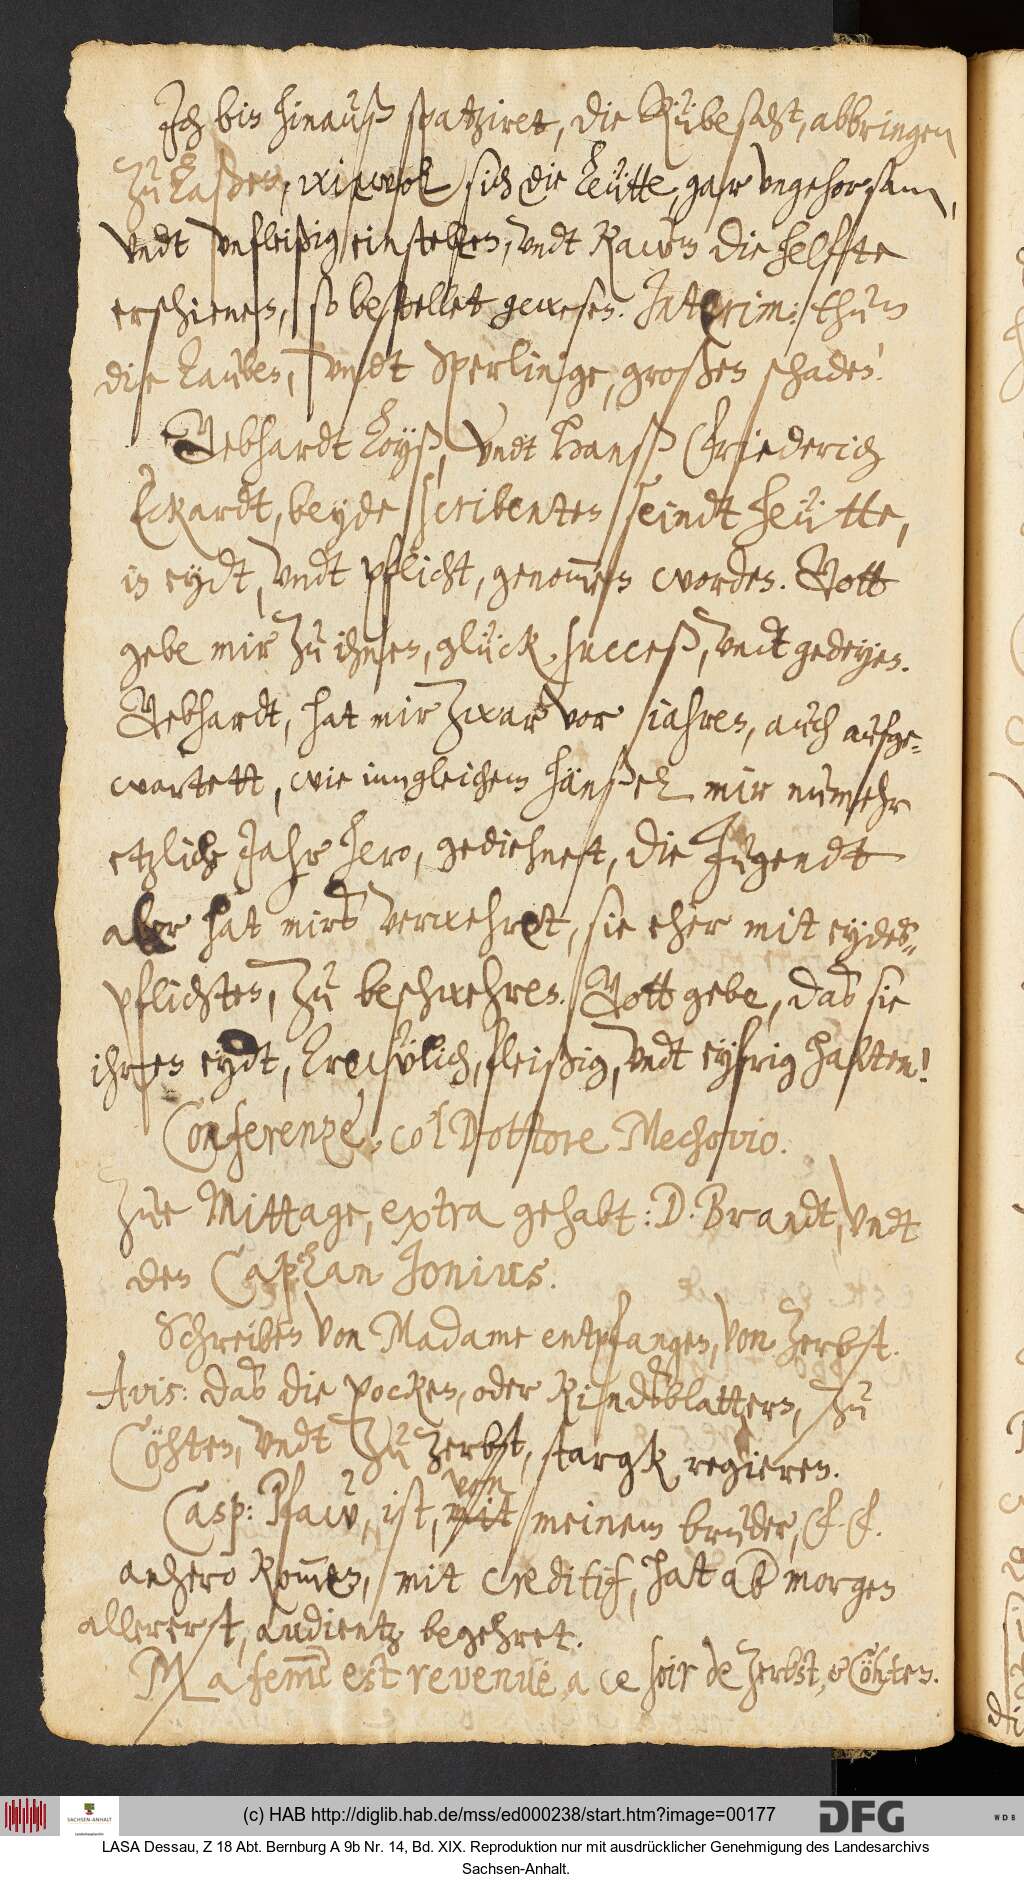 Ich bin hinauß spatziret, die Rübesaht, abbringen
zu laßen, wiewol sich die leütte, gar vngehorsam,
vndt vnfleißig einstellen, vndt kaum die helffte
erschienen, so bestellet gewesen. Interim: thun
die tauben, vndt Sperlinge, großen schaden!
Gebhardt Loyß, vndt Hanß Friederich
Eckardt, beyde scribenten seindt heütte,
in eydt, vndt pflicht, genom̅en worden. Gott
gebe mir zu ihnen, glück, success, vndt gedeyen.
Gebhardt, hat mir zwar vor iahren, auch aufge-
wartett, wie inngleichem Hänßel mir numehr
etzliche Jahr hero, gedienet, die Jugendt
aber hat mirs verwehret, sie eher mit eydes-
pflichten, zu beschwehren. Gott gebe, das sie
ihren eydt, trewlich, fleißig, vndt eyfrig halten!
Conferenze, col Dottore Mechovio.
Zue Mittage, extra gehabt: D. Brandt, vndt
den Caplan Jonius.
Schreiben von Madame entpfangen, von Zerbst.
Avis: das die pocken, oder kindsblattern, zu
Cöhten, vndt zu Zerbst, stargk regieren.
Casp: Pfaw, ist, mit von meinem bruder, F. F.
anhero kom̅en, mit creditif, hat ab morgen
allererst, audientz begehret.
Ma fem̅e est revenüe a ce soir de Zerbst, & Cöhten.
(c) HAB http://diglib.hab.de/mss/ed000238/start.htm?image=00177
SACHSEN-ANHALT
DFG
WDB
LASA Dessau, Z 18 Abt. Bernburg A 9b Nr. 14, Bd. XIX. Reproduktion nur mit ausdrücklicher Genehmigung des Landesarchivs
Sachsen-Anhalt.